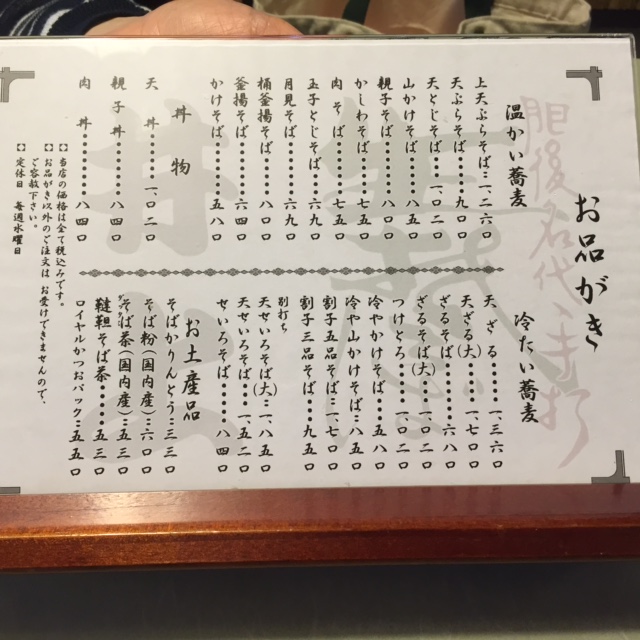 お品がき
肥後名代 手打
温かい蕎麦
上天ぷらそば…一、二六〇
天ぷらそば………九七〇
天とじそば…一、一四〇
山かけそば………八〇〇
親子そば…………八〇〇
かしわそば………七五〇
肉そば……………七五〇
五子とじそば……六九〇
月見そば…………六九〇
桶釜揚そば………八〇〇
釜揚そば…………六四〇
かけそば…………五八〇
丼物
天丼…………一、〇二〇
親子丼……………八四〇
肉丼………………八四〇
【】当店の価格は全て税込みです。
【】お品がき以外のご注文は お受けできませんので、
ご容赦下さい。
【】定休日 毎週水曜日
冷たい蕎麦
天ざる…………一、三六〇
天ざる(大)……一、七〇〇
ざるそば…………六八〇
ざるそば(大)…一、〇二〇
つけとろ………一、〇二〇
冷やかけそば……五八〇
冷や山かけそば…八五〇
割子五品そば…一、五八〇
割子三品そば……九五〇
別打ち
天せいろそば(大)…一、八五〇
天せいろそば…一、五二〇
せいろそば………八四〇
お土産品
そばかりんとう…三三〇
そば粉(国内産)…六〇〇
そば茶(国内産)…五三〇
韃靼そば茶………五五〇
ダッタン
ロイヤルかつおパック…五五〇